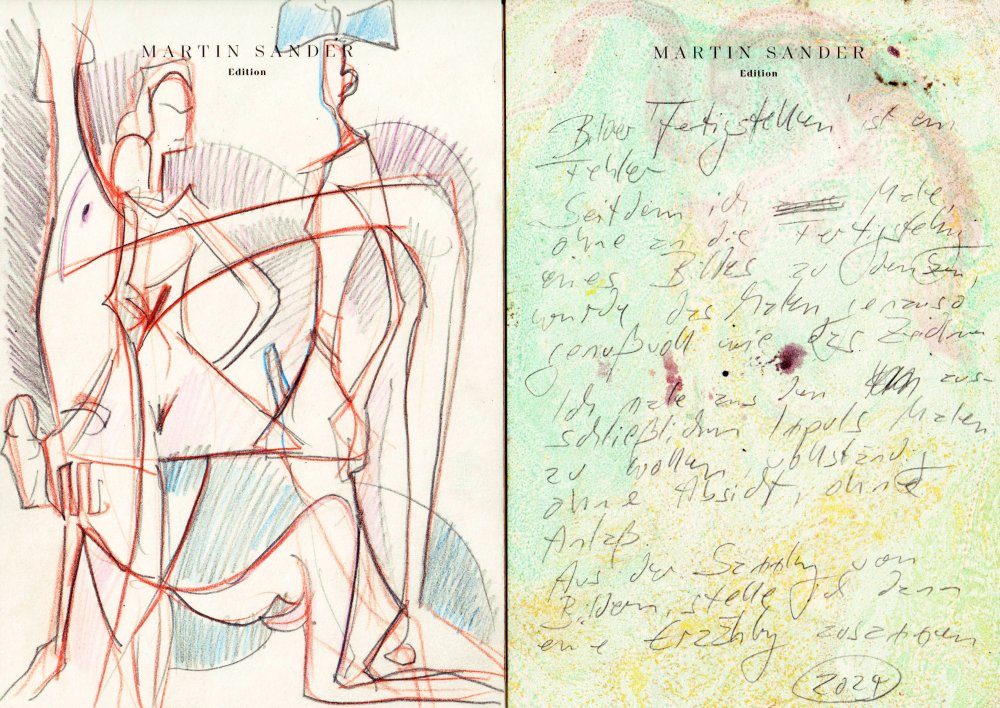 MARTIN SANDER
Edition
MARTIN SANDER
Edition
Bilder "Fertigstellen" ist ein
Fehler
Seitdem ich Male,
ohne an die Fertigstellung
eines Bildes zu denken,
wurde das Malen genauso
genußvoll wie das Zeichnen
Ich male aus dem aus-
schließlichen Impuls Malen
zu wollen, vollständig
ohne Absicht, ohne
Anlaß.
Aus der Sammlung von
Bildern, stelle ich dann
eine Erzählung zusammen
2024